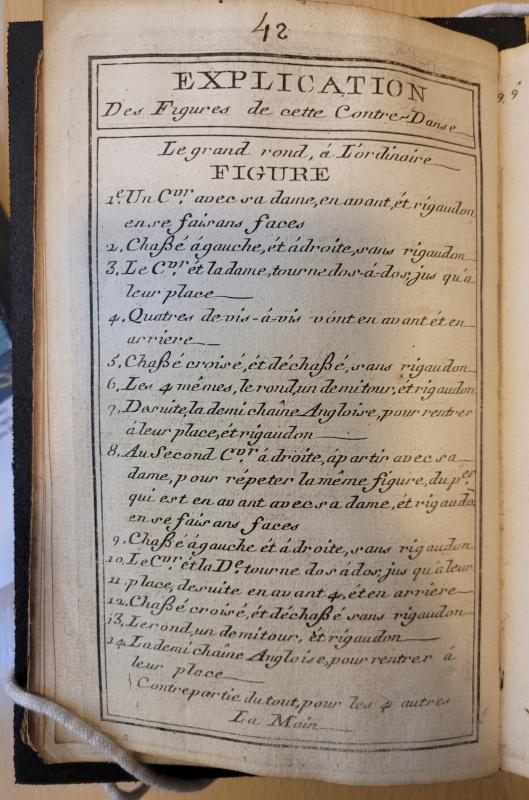 42
EXPLICATION
Des Figures de cette Contre-Danse
Le grand rond, á L'ordinaire
FIGURE
1.e Un C.vr avec sa dame, en avant, ét rigaudon,
en se faisans faces
2. Chaßé ágauche, ét ádroite, sans rigaudon
3. Le C.vr ét la dame, tourne dos-á-dos, jus qu'a
leur place
4. Quatres de vis-á-vis vónt en avant ét en
arriere
5. Chaßé croisé, ét déchaßé, sans rigaudon
6. Les 4 mêmes, le rond, un demi tour, ét rigaudon
7. Desuite, la demi chaîne Angloise, pour rentrer
áleur place, ét rigaudon
8. Au Second C.vr á droite, ápartir avec sa
dame, pour répeter la même figure, du p.er
qui est en avant avec sa dame, ét rigaudō
en se faisans faces
9. Chaßé ágauche ét ádroite, sans rigaudon
10. Le C.vr ét la D.e tourne dos ádos, jus qu'áleur
11. place, desuite en avant 4, ét en arriere
12. Chaßé croisé, ét déchaßé sans rigaudon
13. Le rond, un demi tour, ét rigaudon
14. La demi chaîne Angloise, pour rentrer á
leur place
Contrepartie du tout, pour les 4 autres
La Main
9. 9